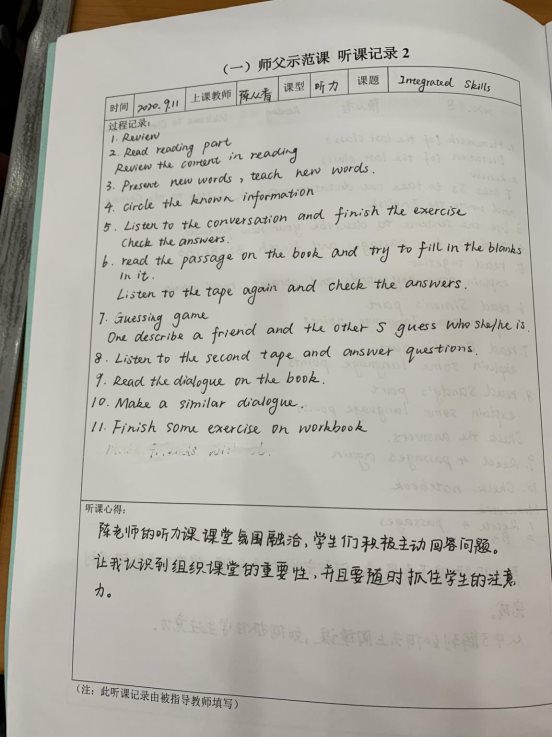 （一）师父示范课 听课记录 2
时间 2020.9.11 上课教师 陈从香 课型 听力 课题 Integrated Skills
过程记录：
1. Review
2. Read reading part
Review the content in reading
3. Present new words, teach new words.
4. circle the known information
5. Listen to the conversation and finish the exercise
check the answers.
6. read the passage on the book and try to fill in the blanks
in it.
Listen to the tape again and check the answers.
7. Guessing game
One describe a friend and the other S guess who she/he is.
8. Listen to the second tape and answer questions.
9. Read the dialogue on the book.
10. Make a similar dialogue.
11. Finish some exercise on workbook
听课心得：
陈老师的听力课课堂氛围融洽，学生们积极主动回答问题。
让我认识到组织课堂的重要性，并且要随时抓住学生的注意
力。
（注：此听课记录由被指导教师填写）